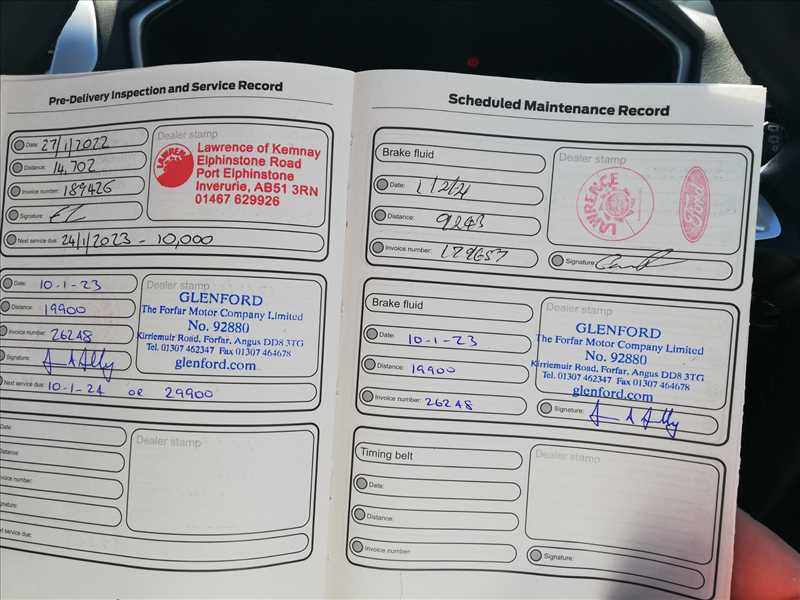 Pre-Delivery Inspection and Service Record
Date: 27/1/2022
Distance: 14,702
Invoice number: 189426
Signature:
Next service due: 24/1/2023 - 10,000
Dealer stamp
LAWRENCE
Lawrence of Kemnay
Elphinstone Road
Port Elphinstone
Inverurie, AB51 3RN
01467 629926
Date: 10-1-23
Distance: 19900
Invoice number: 26248
Signature:
Next service due: 10-1-24 OR 29900
Dealer stamp
GLENFORD
The Forfar Motor Company Limited
No. 92880
Kirriemuir Road, Forfar, Angus DD8 3TG
Tel. 01307 462347 Fax 01307 464678
glenford.com
Date:
Distance:
Invoice number:
Signature:
Next service due:
Dealer stamp
Scheduled Maintenance Record
Brake fluid
Date: 1/2/21
Distance: 9243
Invoice number:
Dealer stamp
LAWRENCE
Ford
Signature:
Brake fluid
Date: 10-1-23
Distance: 19900
Invoice number: 26248
Dealer stamp
GLENFORD
The Forfar Motor Company Limited
No. 92880
Kirriemuir Road, Forfar, Angus DD8 3TG
Tel. 01307 462347 Fax 01307 464678
glenford.com
Signature:
Timing belt
Date:
Distance:
Invoice number
Dealer stamp
Signature: